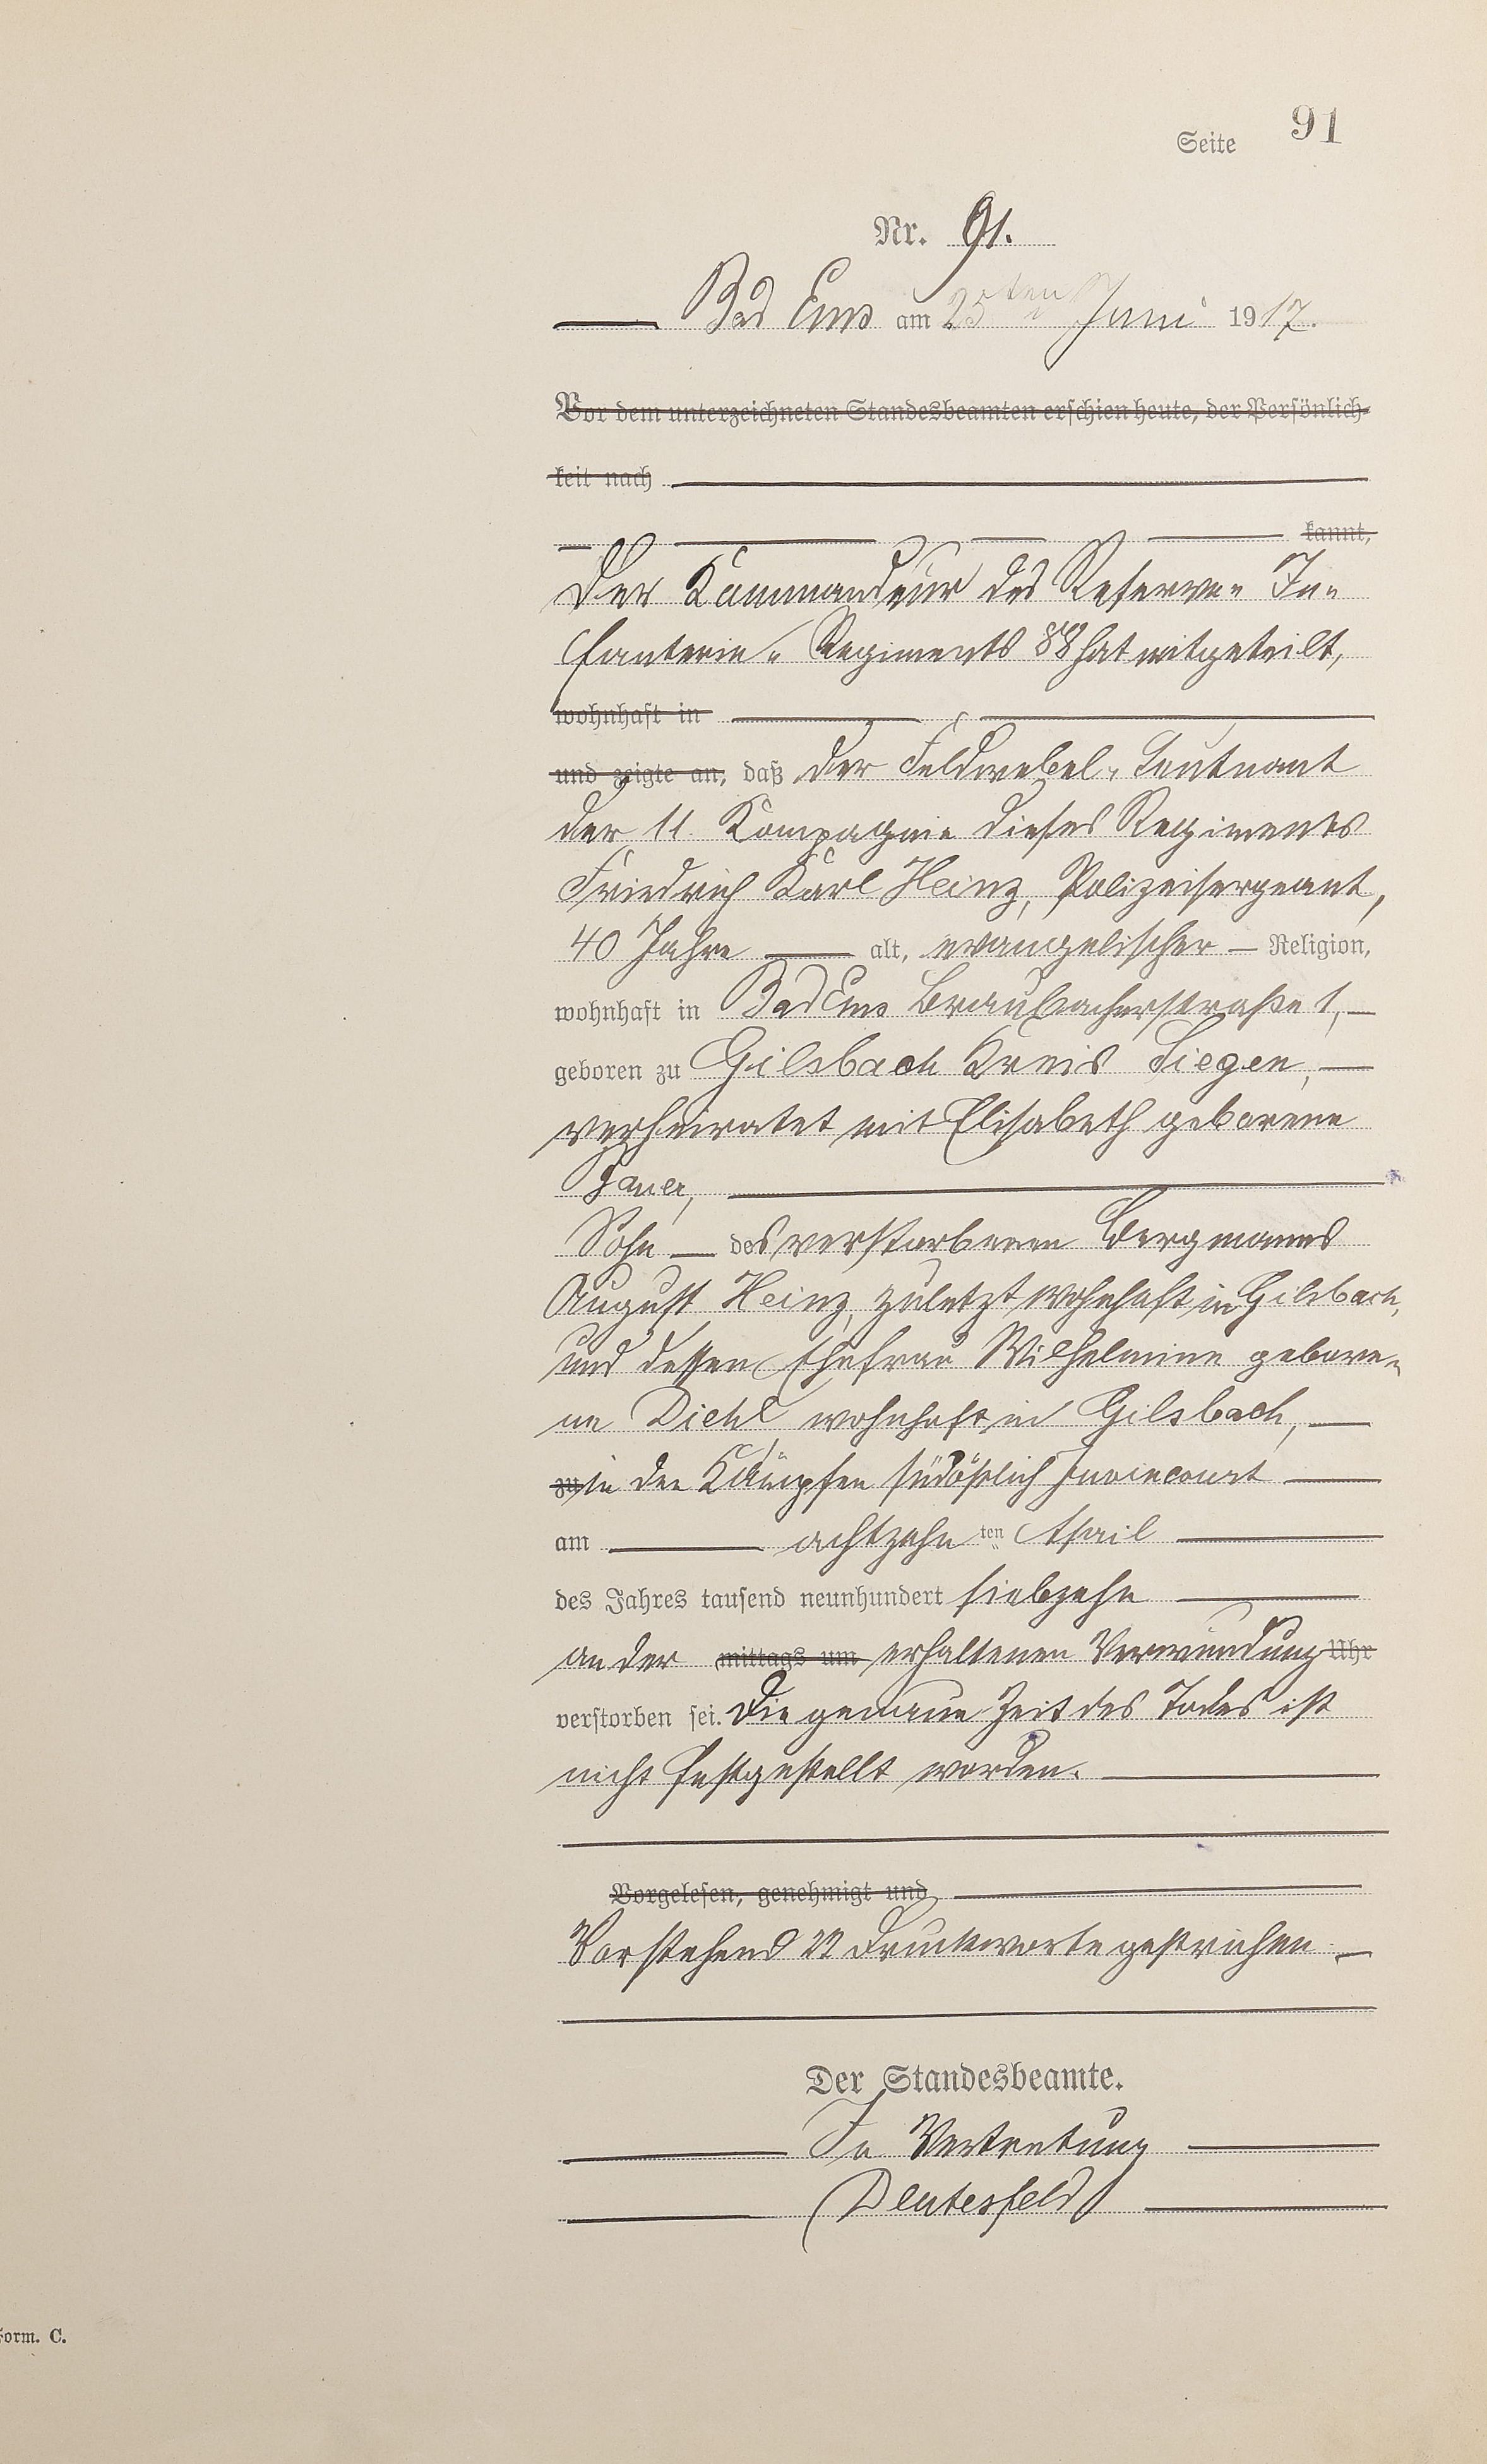 Seite 91
Nr. 91.
Bad Ems am 25ten Juni 1917.
Vor dem unterzeichneten Standesbeamten erschien heute, der Persönlich-
keit nach
kannt,
Der Kommandeur des Reserve- In-
fanterie- Regiments 88 hat mitgeteilt,
wohnhaft in
und zeigte an, daß der Feldwebel-Leutnant
der 11. Kompagnie dieses Regiments
Friedrich Karl Heinz, Polizeisergeant,
40 Jahre alt, evangelischer Religion,
wohnhaft in Bad Ems Braubacherstraße 1,
geboren zu Gilsbach Kreis Siegen,
verheiratet mit Elisabeth geborene
Sohn des verstorbenen Bergmanns
August Heinz, zuletzt wohnhaft in Gilsbach,
und dessen Ehefrau Wilhelmine gebore-
ne Diehl, wohnhaft in Gilsbach,
zu in den Kämpfen südöstlich Juvincourt
am achtzehnten April
des Jahres tausend neunhundert siebzehn
an der mittags um erhaltenen Verwundung Uhr
verstorben sei. Die genaue Zeit des Todes ist
nicht festgestellt worden.
Vorgelesen, genehmigt und
Vorstehend 22 Druckworte gestrichen.
Der Standesbeamte.
In Vertretung
Form. C.